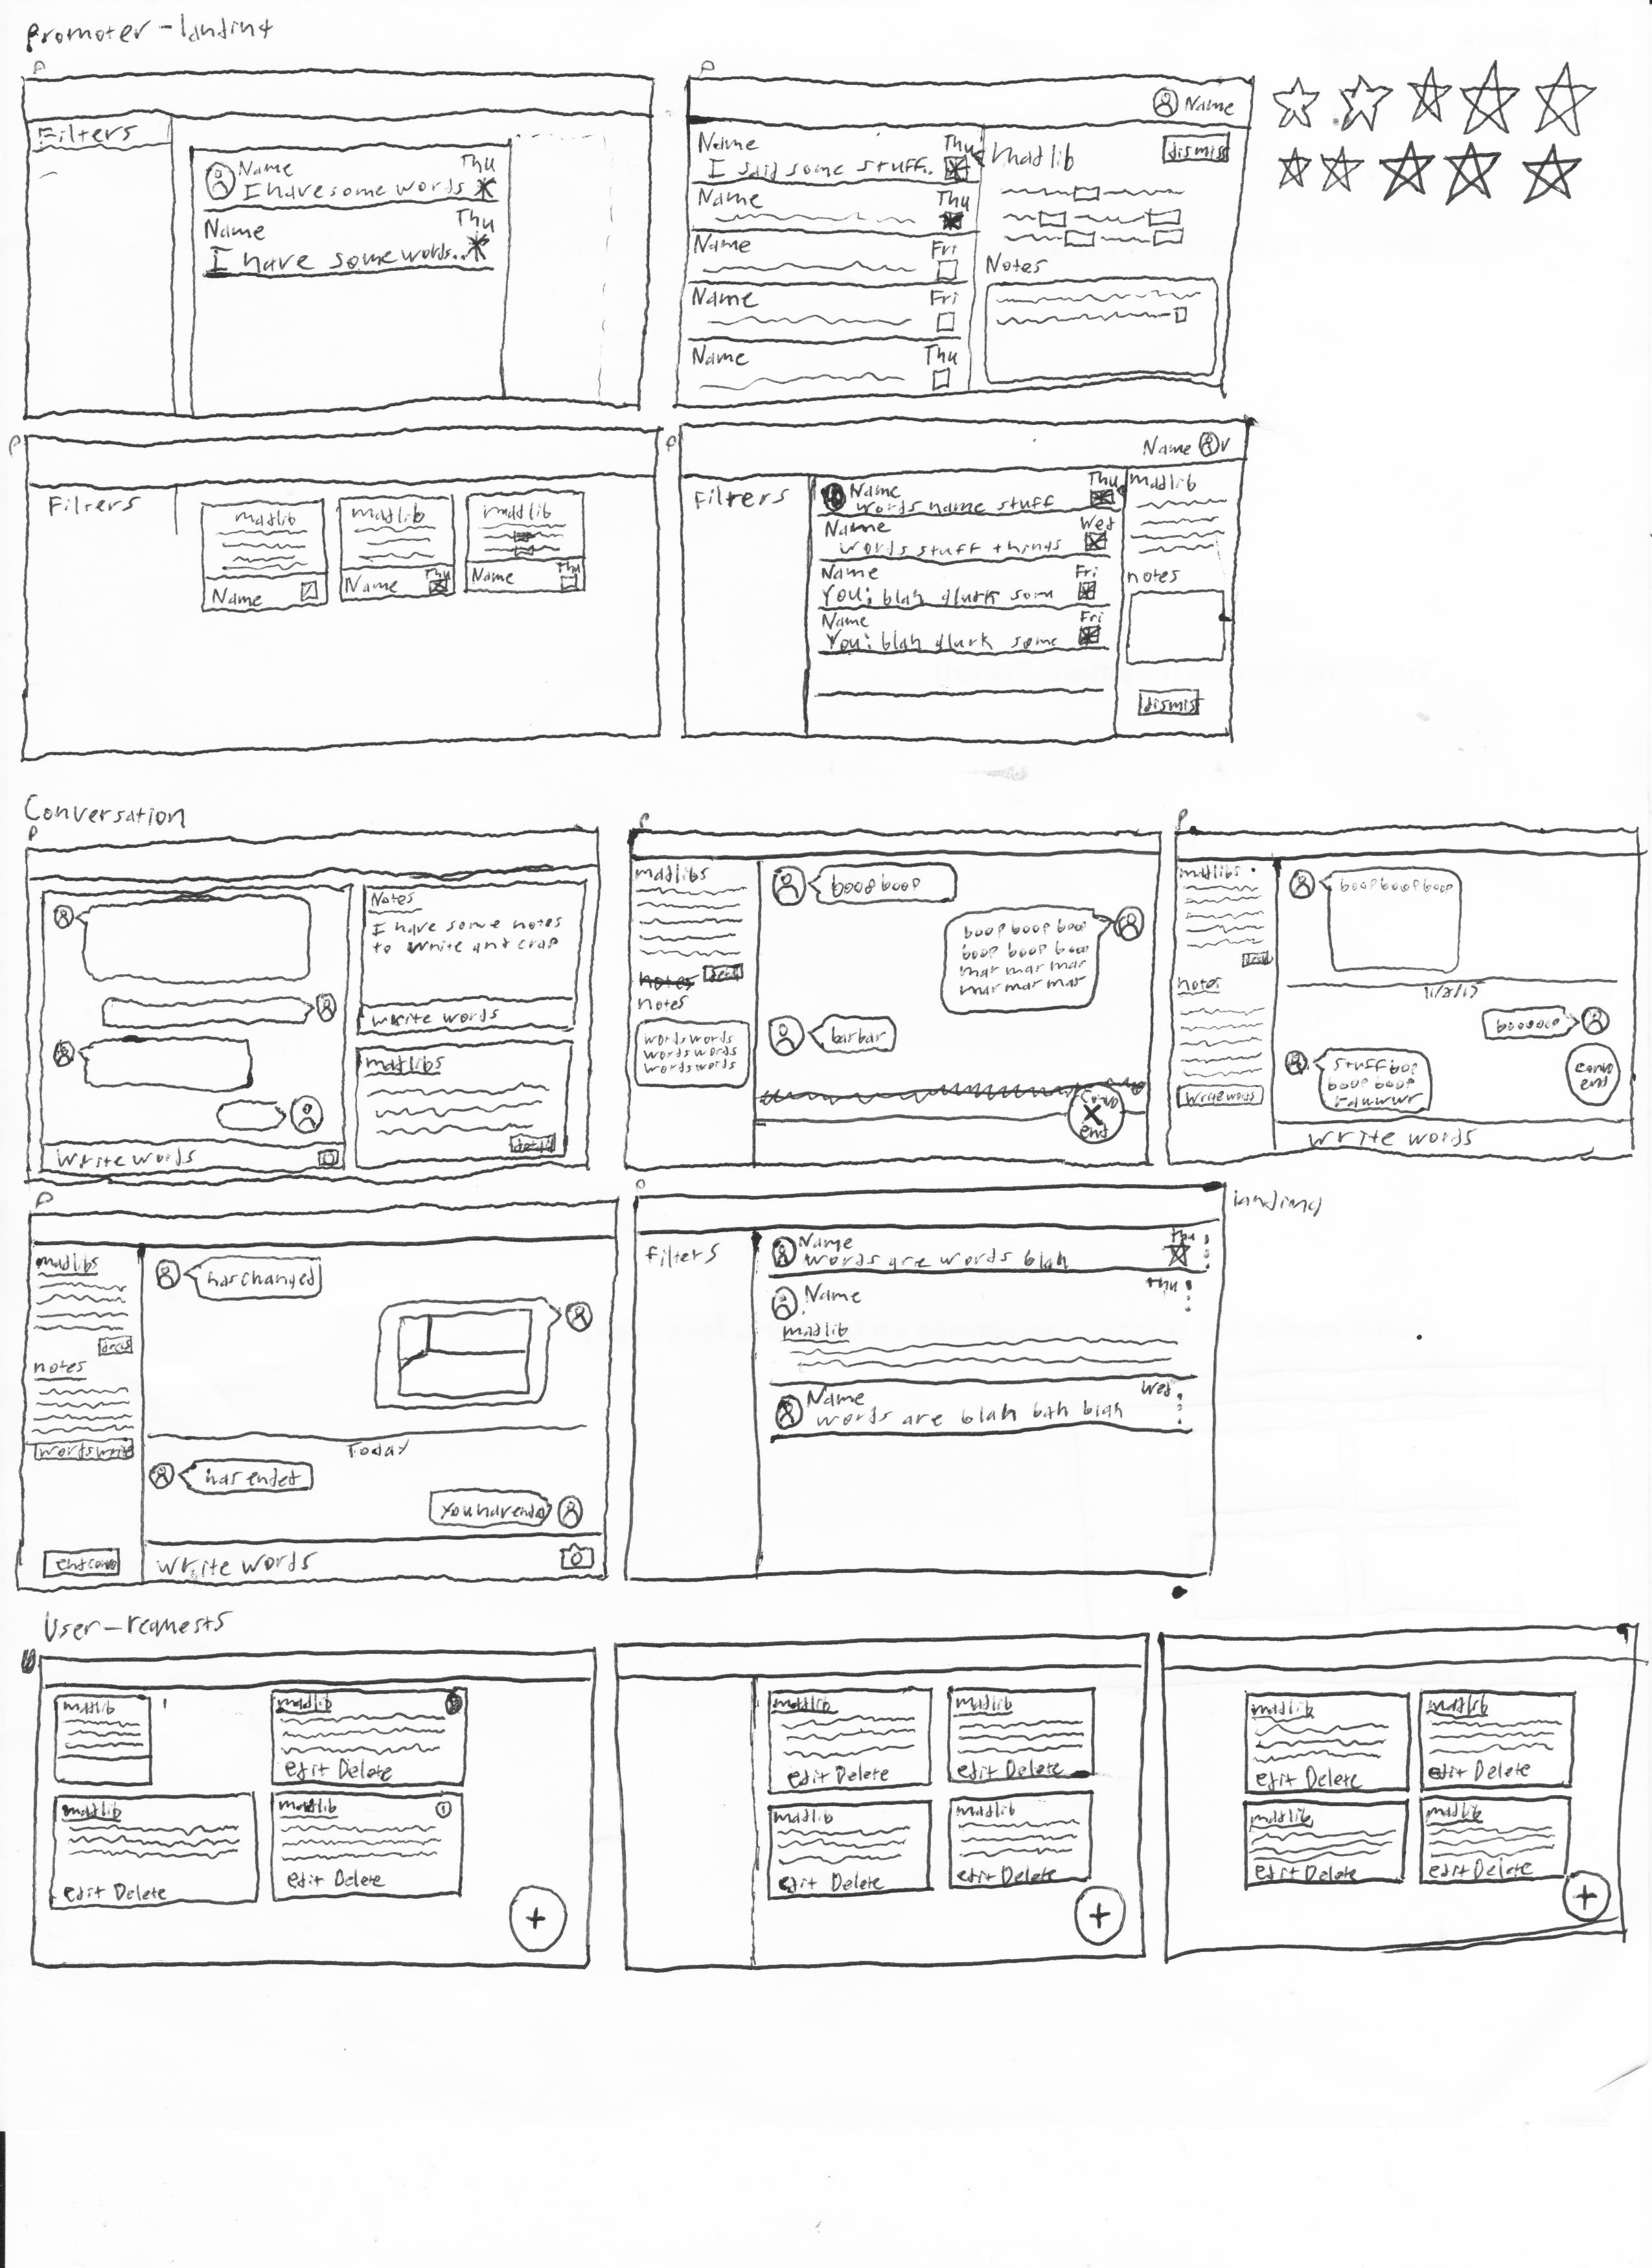 Promoter-landing
P
Filters
Name Thu
I have some words
Name Thu
I have some words..
P
Name
Name Thu
I said some stuff..
Name Thu
Name Fri
Name Fri
Name Thu
Madlib dismiss
Notes
P
Filters
madlib
Name
madlib
Name Thu
madlib
Name Thu
P
Name v
Filters
Name Thu
words name stuff
Name Wed
words stuff things
Name Fri
You: blah glurk som
Name Fri
You: blah glurk some
madlib
notes
dismiss
Conversation
P
Write words
Notes
I have some notes
to write and crap
write words
madlibs
P
madlibs
notes
notes
words words
words words
words words
boopboop
boop boop boop
boop boop boop
mar mar mar
mar mar mar
barbar
convo
end
P
madlibs
notes
write words
boopboopboop
11/2/15
stuff bop
boop boop
convo
end
write words
P
madlibs
notes
words write
end convo
has changed
Today
has ended
write words
P
landing
filters
Name Thu
words are words blah
Name Thu
madlib
Name Wed
words are blah bah blah
User-requests
madlib
madlib
edit Delete
madlib
edit Delete
madlib
edit Delete
+
madlib
edit Delete
madlib
edit Delete
madlib
edit Delete
madlib
edit Delete
+
madlib
edit Delete
madlib
edit Delete
madlib
edit Delete
madlib
edit Delete
+